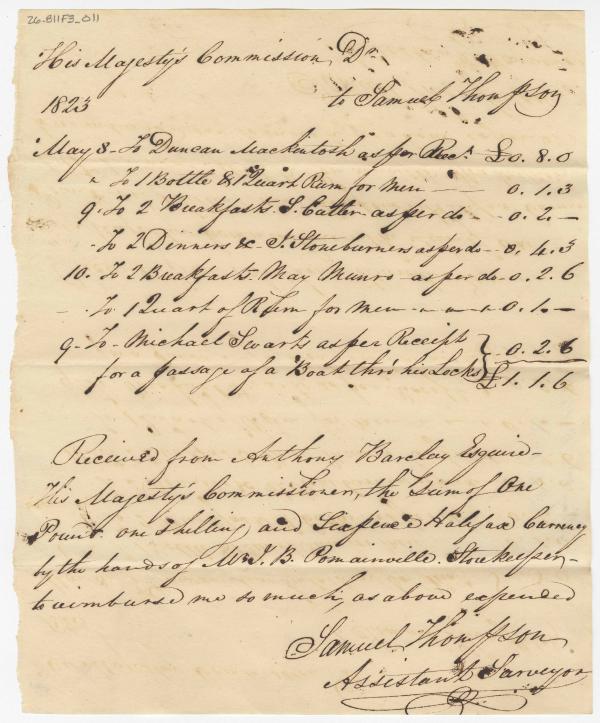 26-811F3_011
His Majesty's Commission, Dr
1823 to Samuel Thompson
May 8 - To Duncan Mackintosh as per Rect. £0. 8. 0
" To 1 Bottle & 1 Quart Rum for men - - 0. 1. 3
9. To 2 Breakfasts. S. as per do - 0. 2. -
- To 2 Dinners &c - J. Stoneburners as per do - 0. 4. 3
10. To 2 Breakfasts. May Munro - as per do - 0. 2. 6
- To 1 Quart of Rum for men - - - 0. 1. -
9 - To - Michael Swarts as per Receipt } 0. 2. 6
for a passage of a Boat thro' his Locks } £1. 1. 6
Received from Anthony Barclay Esquire -
His Majesty's Commissioner, the Sum of One
Pound one Shilling and Sixpence Halifax Currency
by the hands of Mr. J. B. Pomainville. Storekeeper -
to reimburse me so much, as above expended
Samuel Thompson
Assistant Surveyor